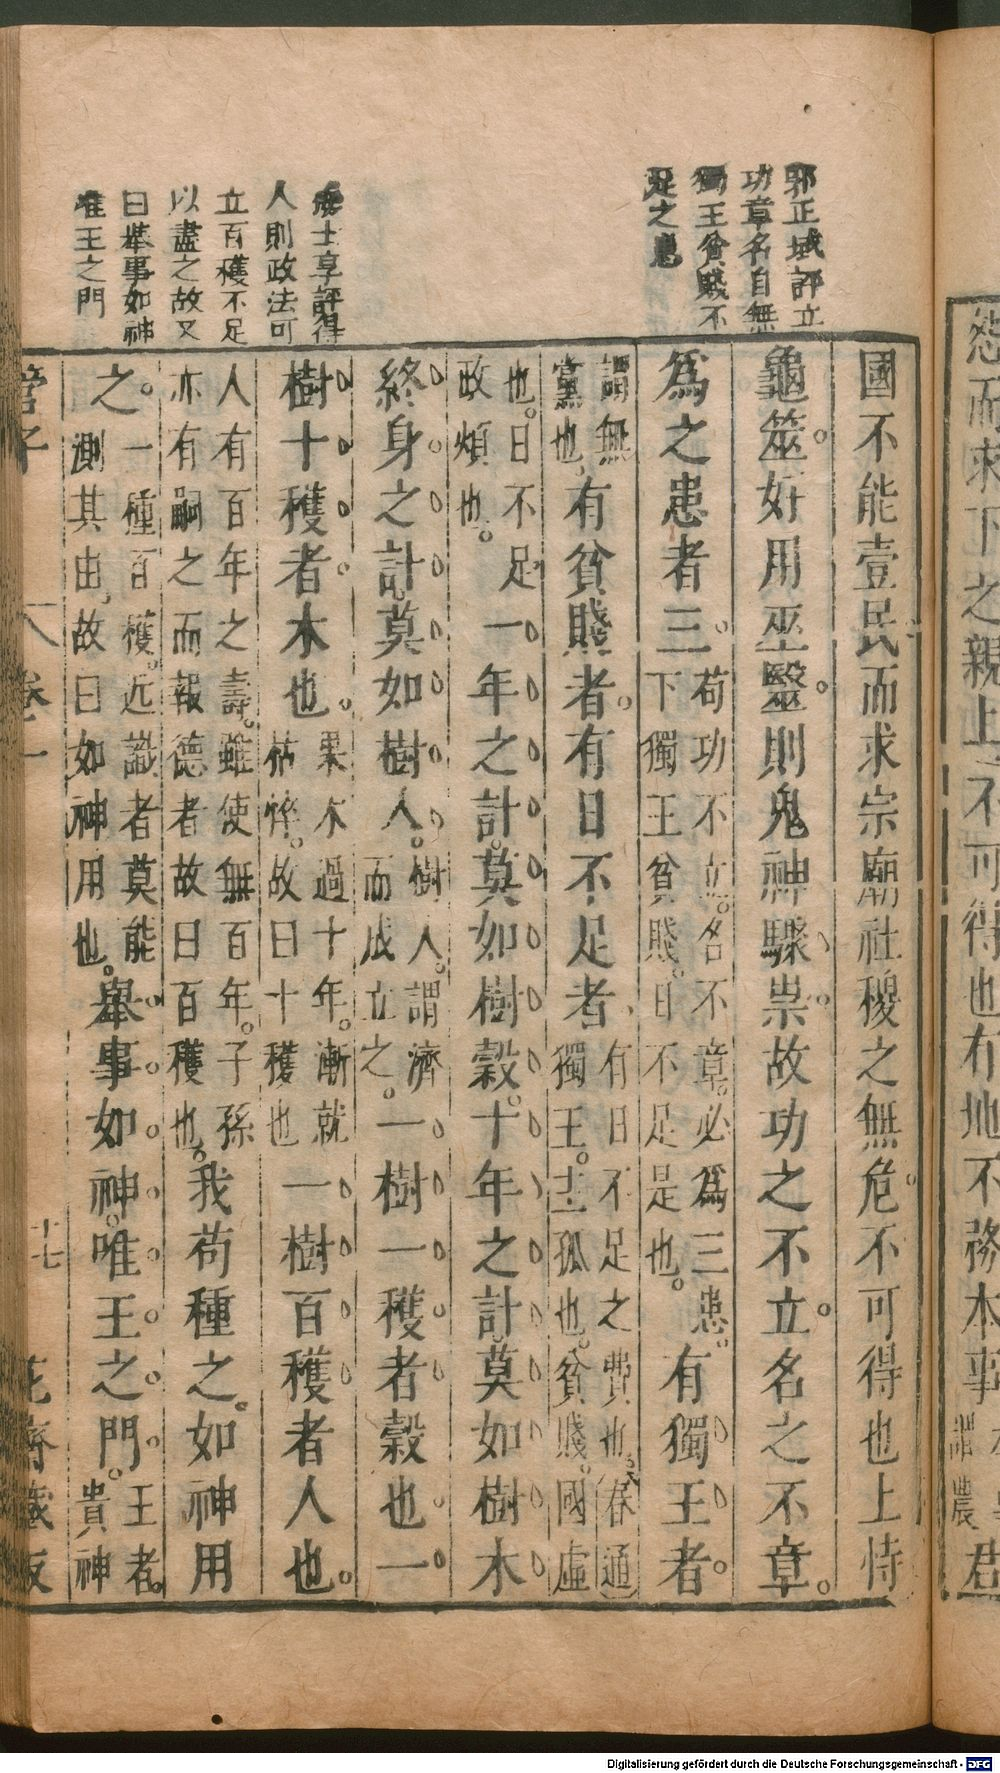 怨而求下之親上不可得也有地不務本事君
謂農
郭正域評立
功章名自無
獨王貧賤不
足之患
國不能壹民而求宗廟社稷之無危不可得也上恃
龜筮。好用巫毉。則鬼神驟祟。故功之不立。名之不章。
爲之患者三。苟功不立。名不章。必爲三患。下獨王貧賤。日不足是也。有獨王者。
謂無黨也。有貧賤者。有日不足者有日不足之費也。春通獨王。士孤也。貧賤。國虛
也。日不足政煩也。一年之計。莫如樹穀。十年之計。莫如樹木
終身之計。莫如樹人。樹人。謂濟而成立之。一樹一穫者。穀也。一
樹十穫者。木也。果木過十年。漸就枯悴。故曰十穫也一樹百穫者人也。
人有百年之壽。雖使無百年。子孫亦有嗣之而報德者故曰百穫也。我苟種之。如神用
之。一種百穫。近識者莫能測其由。故曰如神用也。舉事如神。唯王之門。王者。貴神
士享評得
人則政法可
立百穫不足
以盡之故又
曰舉事如神
唯王之門
管子
卷一
十七
花齋藏板
Digitalisierung gefördert durch die Deutsche Forschungsgemeinschaft - DFG